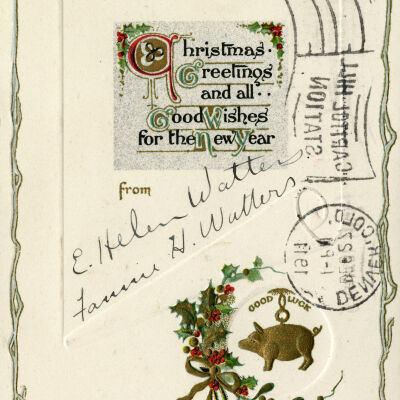 Christmas
Greetings
and all
Good Wishes
for the New Year
from
E. Helen Watters
Fannie H. Watters
GOOD LUCK
CAPITOL HILL
STATION
DENVER, COLO.
DEC 22
1911